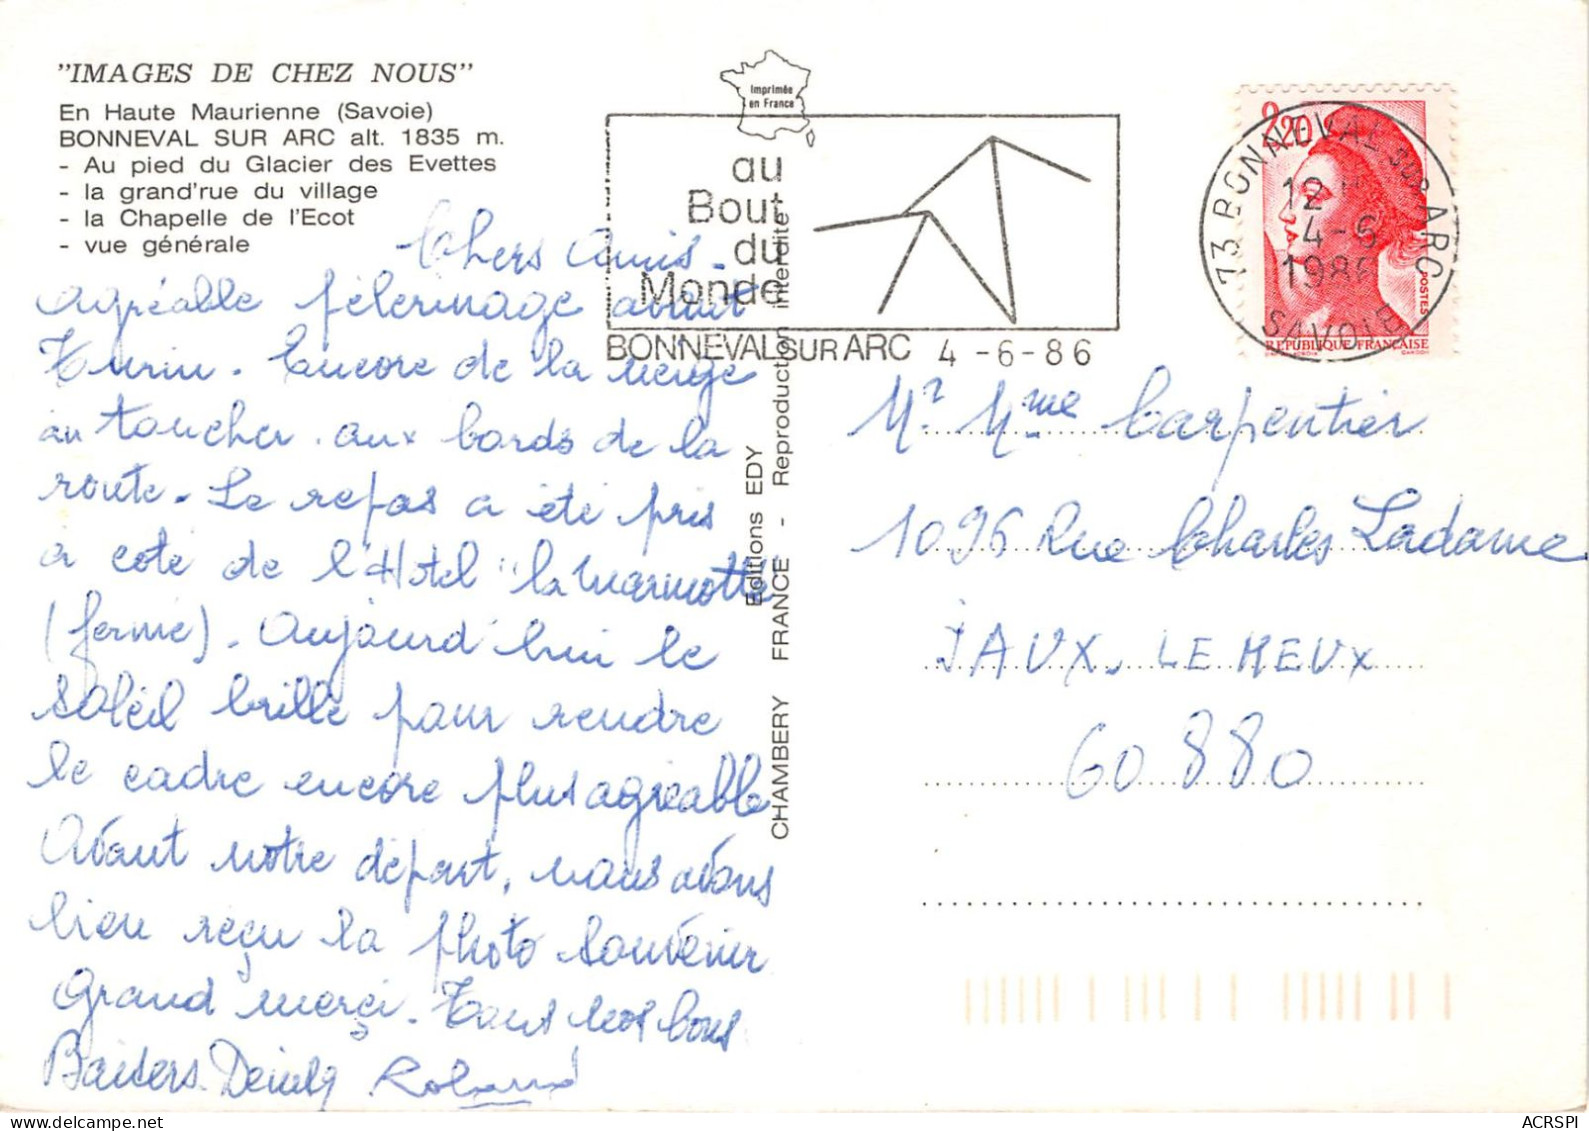 "IMAGES DE CHEZ NOUS"
En Haute Maurienne (Savoie)
BONNEVAL SUR ARC alt. 1835 m.
- Au pied du Glacier des Evettes
- la grand'rue du village
- la Chapelle de l'Ecot
- vue générale
Chers Amis -
agréable pélerinage avant
Turin. Encore de la neige
au toucher. aux bords de la
route. Le repas a été pris
a coté de l'Hotel "la Marmotte
(fermé). Aujourd'hui le
soleil brille pour rendre
le cadre encore plus agréable
Avant notre départ, nous avons
bien reçu la photo souvenir
Grand merçi. Tous nos bons
Baisers. Roland
Imprimée
en France
au
Bout
du
Monde
BONNEVAL SUR ARC 4 -6-86
Editions EDY
CHAMBERY FRANCE - Reproduction interdite
2,20
POSTES
REPUBLIQUE FRANCAISE
73 BONNEVAL SUR ARC
12 H
4-6
1986
SAVOIE
Mr Mme Carpentier
1096 Rue Charles Ladame
JAUX. LE MEUX
60 880
ACRSPI